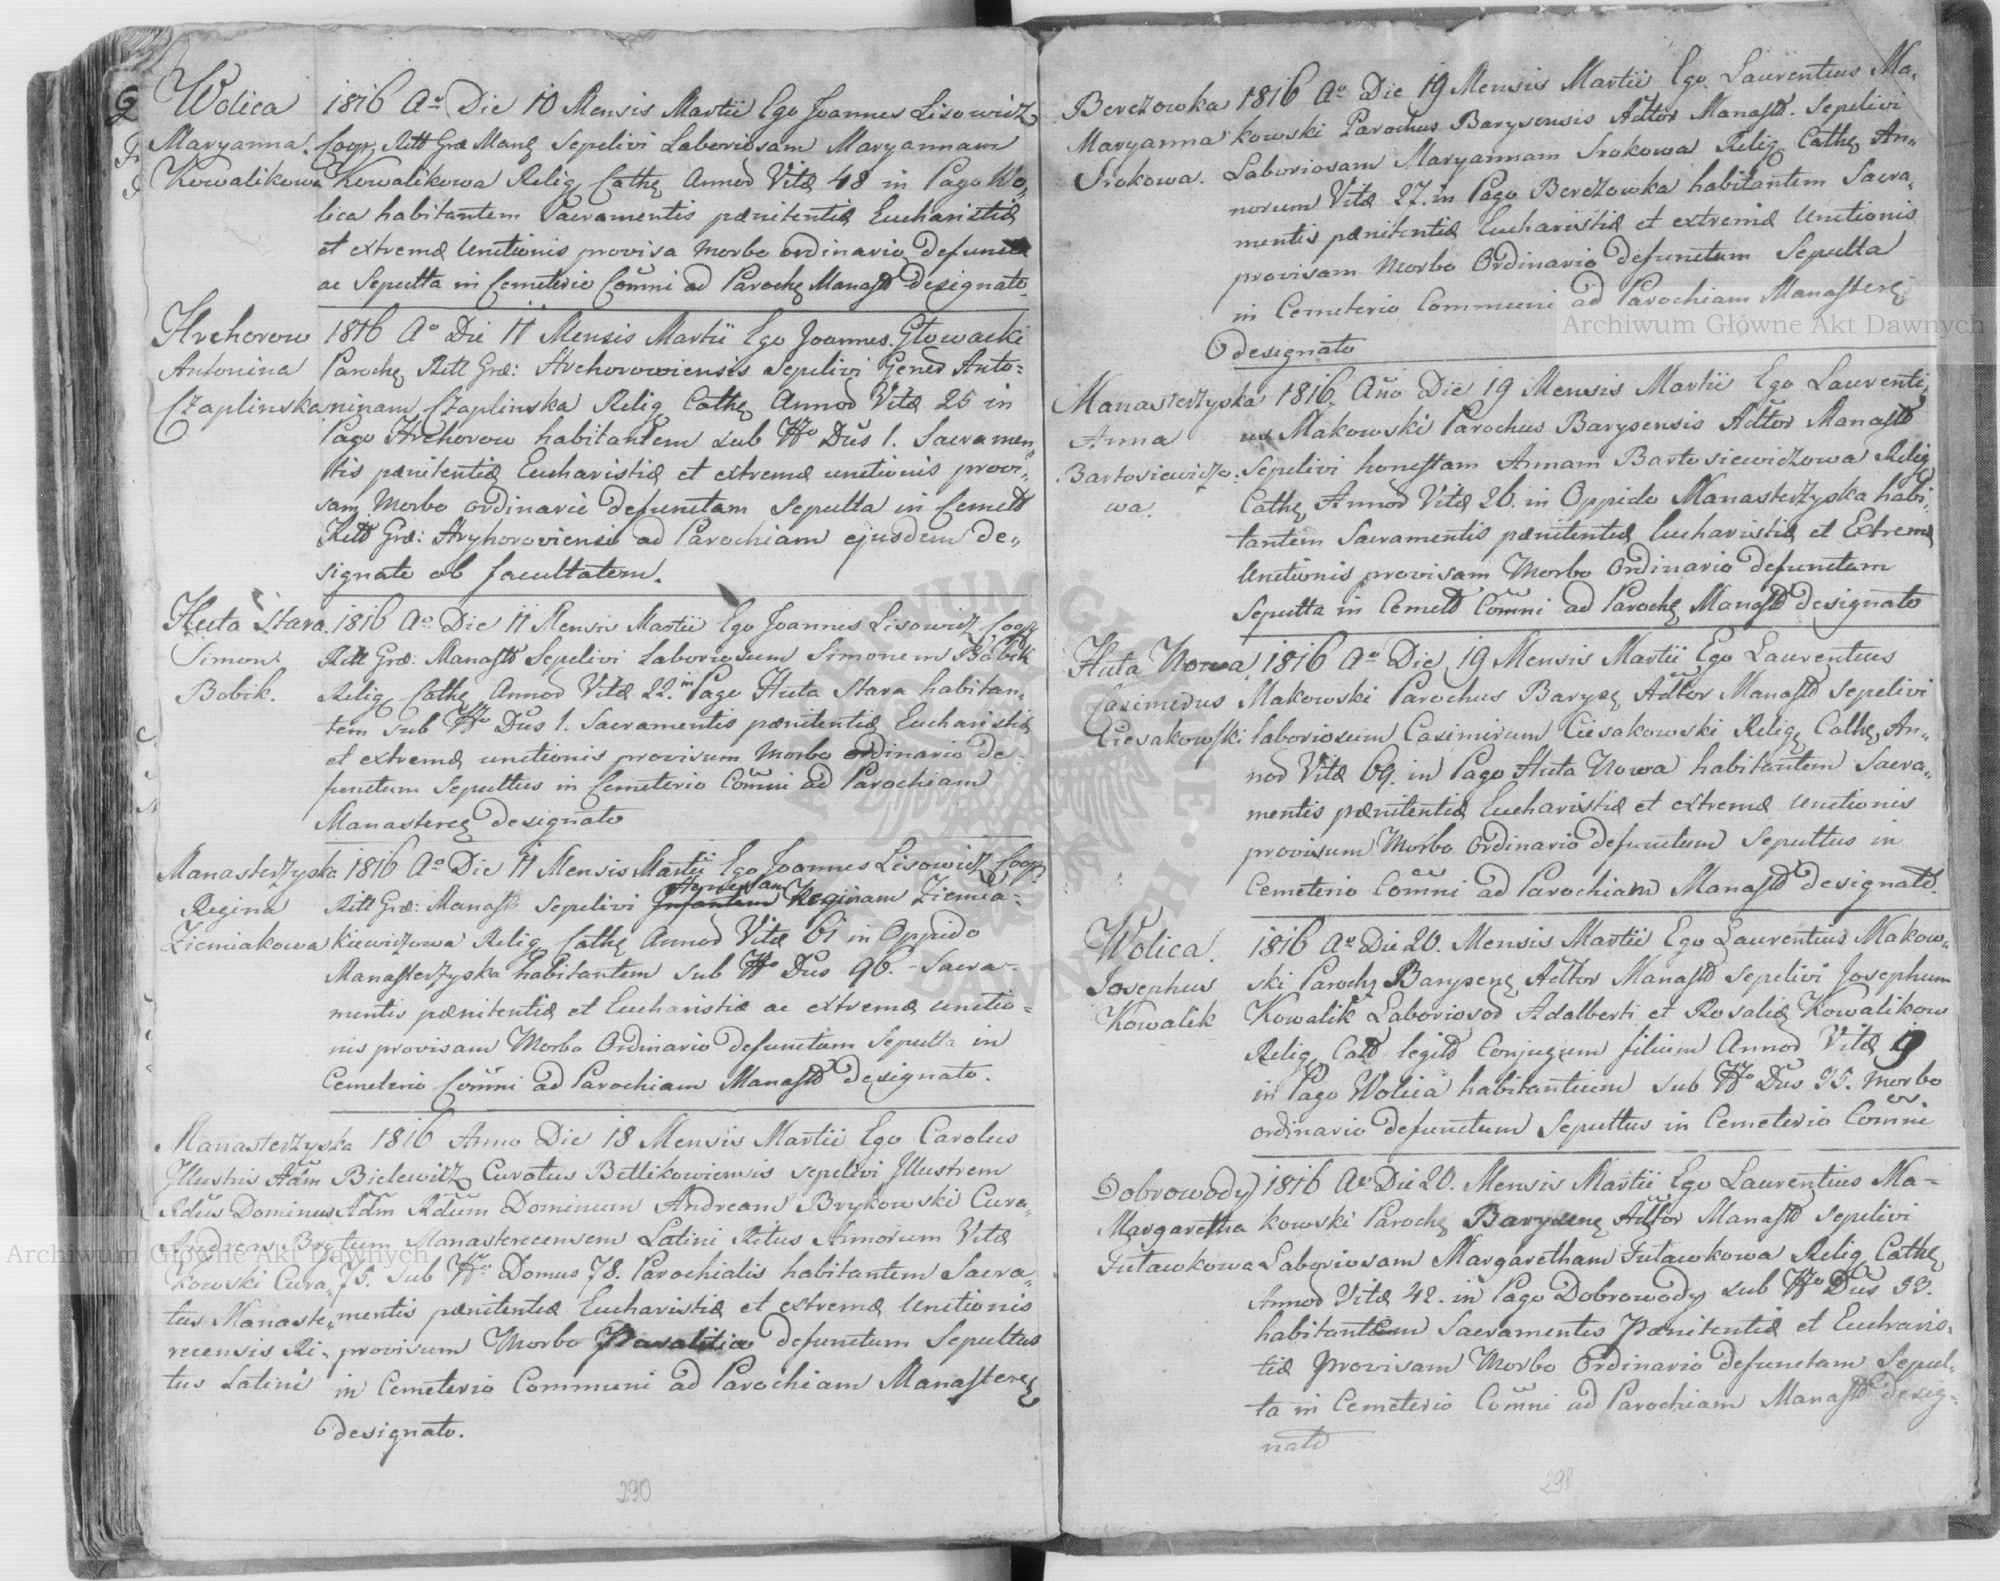 Wolica
Maryanna
Kowalikowa
1816 Ao Die 10 Mensis Martii Ego Joannes Lisowicz
Coopr. Ritt Græ Manaṣ sepelivi Laboriosam Maryannam
Kowalikowa Relig Cathę Annoᵭ Vitæ 48 in Pago Wo„
lica habitantem Sacramentis pænitentiæ Eucharistiæ
et extremæ Unctionis provisa Morbo ordinario defuncta
ac Sepulta in Cemeterio Com̄ni ad Parochę Manastᵭ designato.
Hrehorow
Antonina
Czaplinska
1816 Ao Die 11 Mensis Martii Ego Joannes Głowacki
Parochę Ritt Græ: Hrehorowiensis sepelivi Geneᵭ Anto=
ninam Czaplinska Relig Cathę Annoᵭ Vitæ 25 in
Pago Hrehorow habitantem sub Nro Dus 1. Sacramen„
tis pænitentiæ Eucharistiæ et extremæ unctionis provi„
sam Morbo ordinario defunctam sepulta in Cemetᵭ
Ritᵭ Græ: Hryhoroviensi ad Parochiam ejusdem de„
signato ob facultatem.
Huta Stara.
Simon
Bobik.
1816 Ao Die 11 Mensis Martii Ego Joannes Lisowicz Coop
Ritt Græ: Manastᵭ sepelivi Laboriosum Simonem Bobik
Relig Cathę Annoᵭ Vitæ 22. in Pago Huta Stara habitan„
tem sub Nro Dus 1. Sacramentis pænitentiæ Eucharistiæ
et extremæ unctionis provisum Morbo ordinario de„
functum Sepultus in Cemeterio Com̄ni ad Parochiam
Manasterę designato
Manasterzyska
Regina
Ziemiakowa
1816 Ao Die 11 Mensis Martii Ego Joannes Lisowicz Coop.
Ritt Græ: Manastᵭ sepelivi Infantem Honestam Reginam Ziemia=
kiewiczowa Relig Cathę Annoᵭ Vitæ 61 in Oppido
Manasterzyska habitantem sub Nro Dus 96. Sacra=
mentis pænitentiæ et Eucharistiæ ac extremæ unctio=
nis provisam Morbo Ordinario defunctam Sepulta in
Cemeterio Com̄ni ad Parochiam Manastᵭ designato.
Manasterzyska
Illustris Adm
Rdũs Dominus
Andreas Bry„
kowski Cura„
tus Manaste„
recensis Ri„
tus Latini
1816 Anno Die 18 Mensis Martii Ego Carolus
Bielewicz Curatus Betlikowiensis sepelivi Illustrem
Adm Rdũm Dominum Andream Brykowski Cura„
tum Manasterecensem Latini Ritus Annorum Vitæ
75. sub Nro Domus 78. Parochialis habitantem Sacra„
mentis pænitentiæ Eucharistiæ et extremæ Unctionis
provisum Morbo Paralitico defunctum Sepultus
in Cemeterio Communi ad Parochiam Manasterę
designato.
290
Berezowka
Maryanna
Srokowa.
1816 Ao Die 19 Mensis Martii Ego Laurentius Ma„
kowski Parochus Barysensis Adt̃or Manastᵭ. Sepelivi
Laboriosam Maryannam Srokowa Relig Cathę An„
norum Vitæ 27. in Pago Berezowka habitantem Sacra„
mentis pænitentiæ Eucharistiæ et extremiæ Unctionis
provisam Morbo Ordinario defunctam Sepulta
in Cemeterio Communi ad Parochiam Manasterę
designato
Manasterzyska
Anna
Bartosiewiczo„
wa.
1816. Año Die 19 Mensis Martii Ego Laurenti„
us Makowski Parochus Barysensis Adt̃or Manastᵭ
Sepelivi honestam Annam Bartosiewiczowa Relig
Cathę Annoᵭ Vitæ 26. in Oppido Manasterzyska habi„
tantem Sacramentis pænitentiæ Eucharistiæ et Extremæ
Unctionis provisam Morbo Ordinario defunctam
Sepulta in Cemetᵭ Com̄ni ad Parochę Manastᵭ designato
Huta Nowa
Casimirus
Ciesakowski
1816 Ao Die 19 Mensis Martii Ego Laurentius
Makowski Parochus Barysę Adt̃or Manastᵭ sepelivi
laboriosum Casimirum Ciesakowski Relig Cathę An„
noᵭ Vitæ 69. in Pago Huta Nowa habitantem Sacra„
mentis pænitentiæ Eucharistiæ et extremæ Unctionis
provisum Morbo ordinario defunctum sepultus in
Cemeterio Com̄ni ad Parochiam Manastᵭ designatᵭ.
Wolica.
Josephus
Kowalik
1816 Ao Die 20. Mensis Martii Ego Laurentius Makow„
ski Parochę Barysenę Adt̃or Manastᵭ sepelivi Josephum
Kowalik Laboriosoᵭ Adalberti et Rosaliæ Kowalikow
Relig Catᵭ legitᵭ Conjugum filium Annoᵭ Vitæ 9
in Pago Wolica habitantium sub Nro Dus 95. Morbo
ordinario defunctum Sepultus in Cemeterio Com̄ni
Dobrowody
Margaretha
Tutawkowa
1816 Ao Die 20. Mensis Martii Ego Laurentius Ma=
kowski Parochę Barysenę Adt̃or Manastᵭ sepelivi
Laboriosam Margaretham Tutawkowa Relig Cathę
Annoᵭ Vitæ 42. in Pago Dobrowody sub Nro Dus 53.
habitantem Sacramentis Pænitentiæ et Eucharis„
tiæ provisam Morbo Ordinario defunctam Sepul„
ta in Cemeterio Com̄ni ad Parochiam Manastᵭ desig„
natᵭ
291
Archiwum Główne Akt Dawnych
Archiwum Główne Akt Dawnych